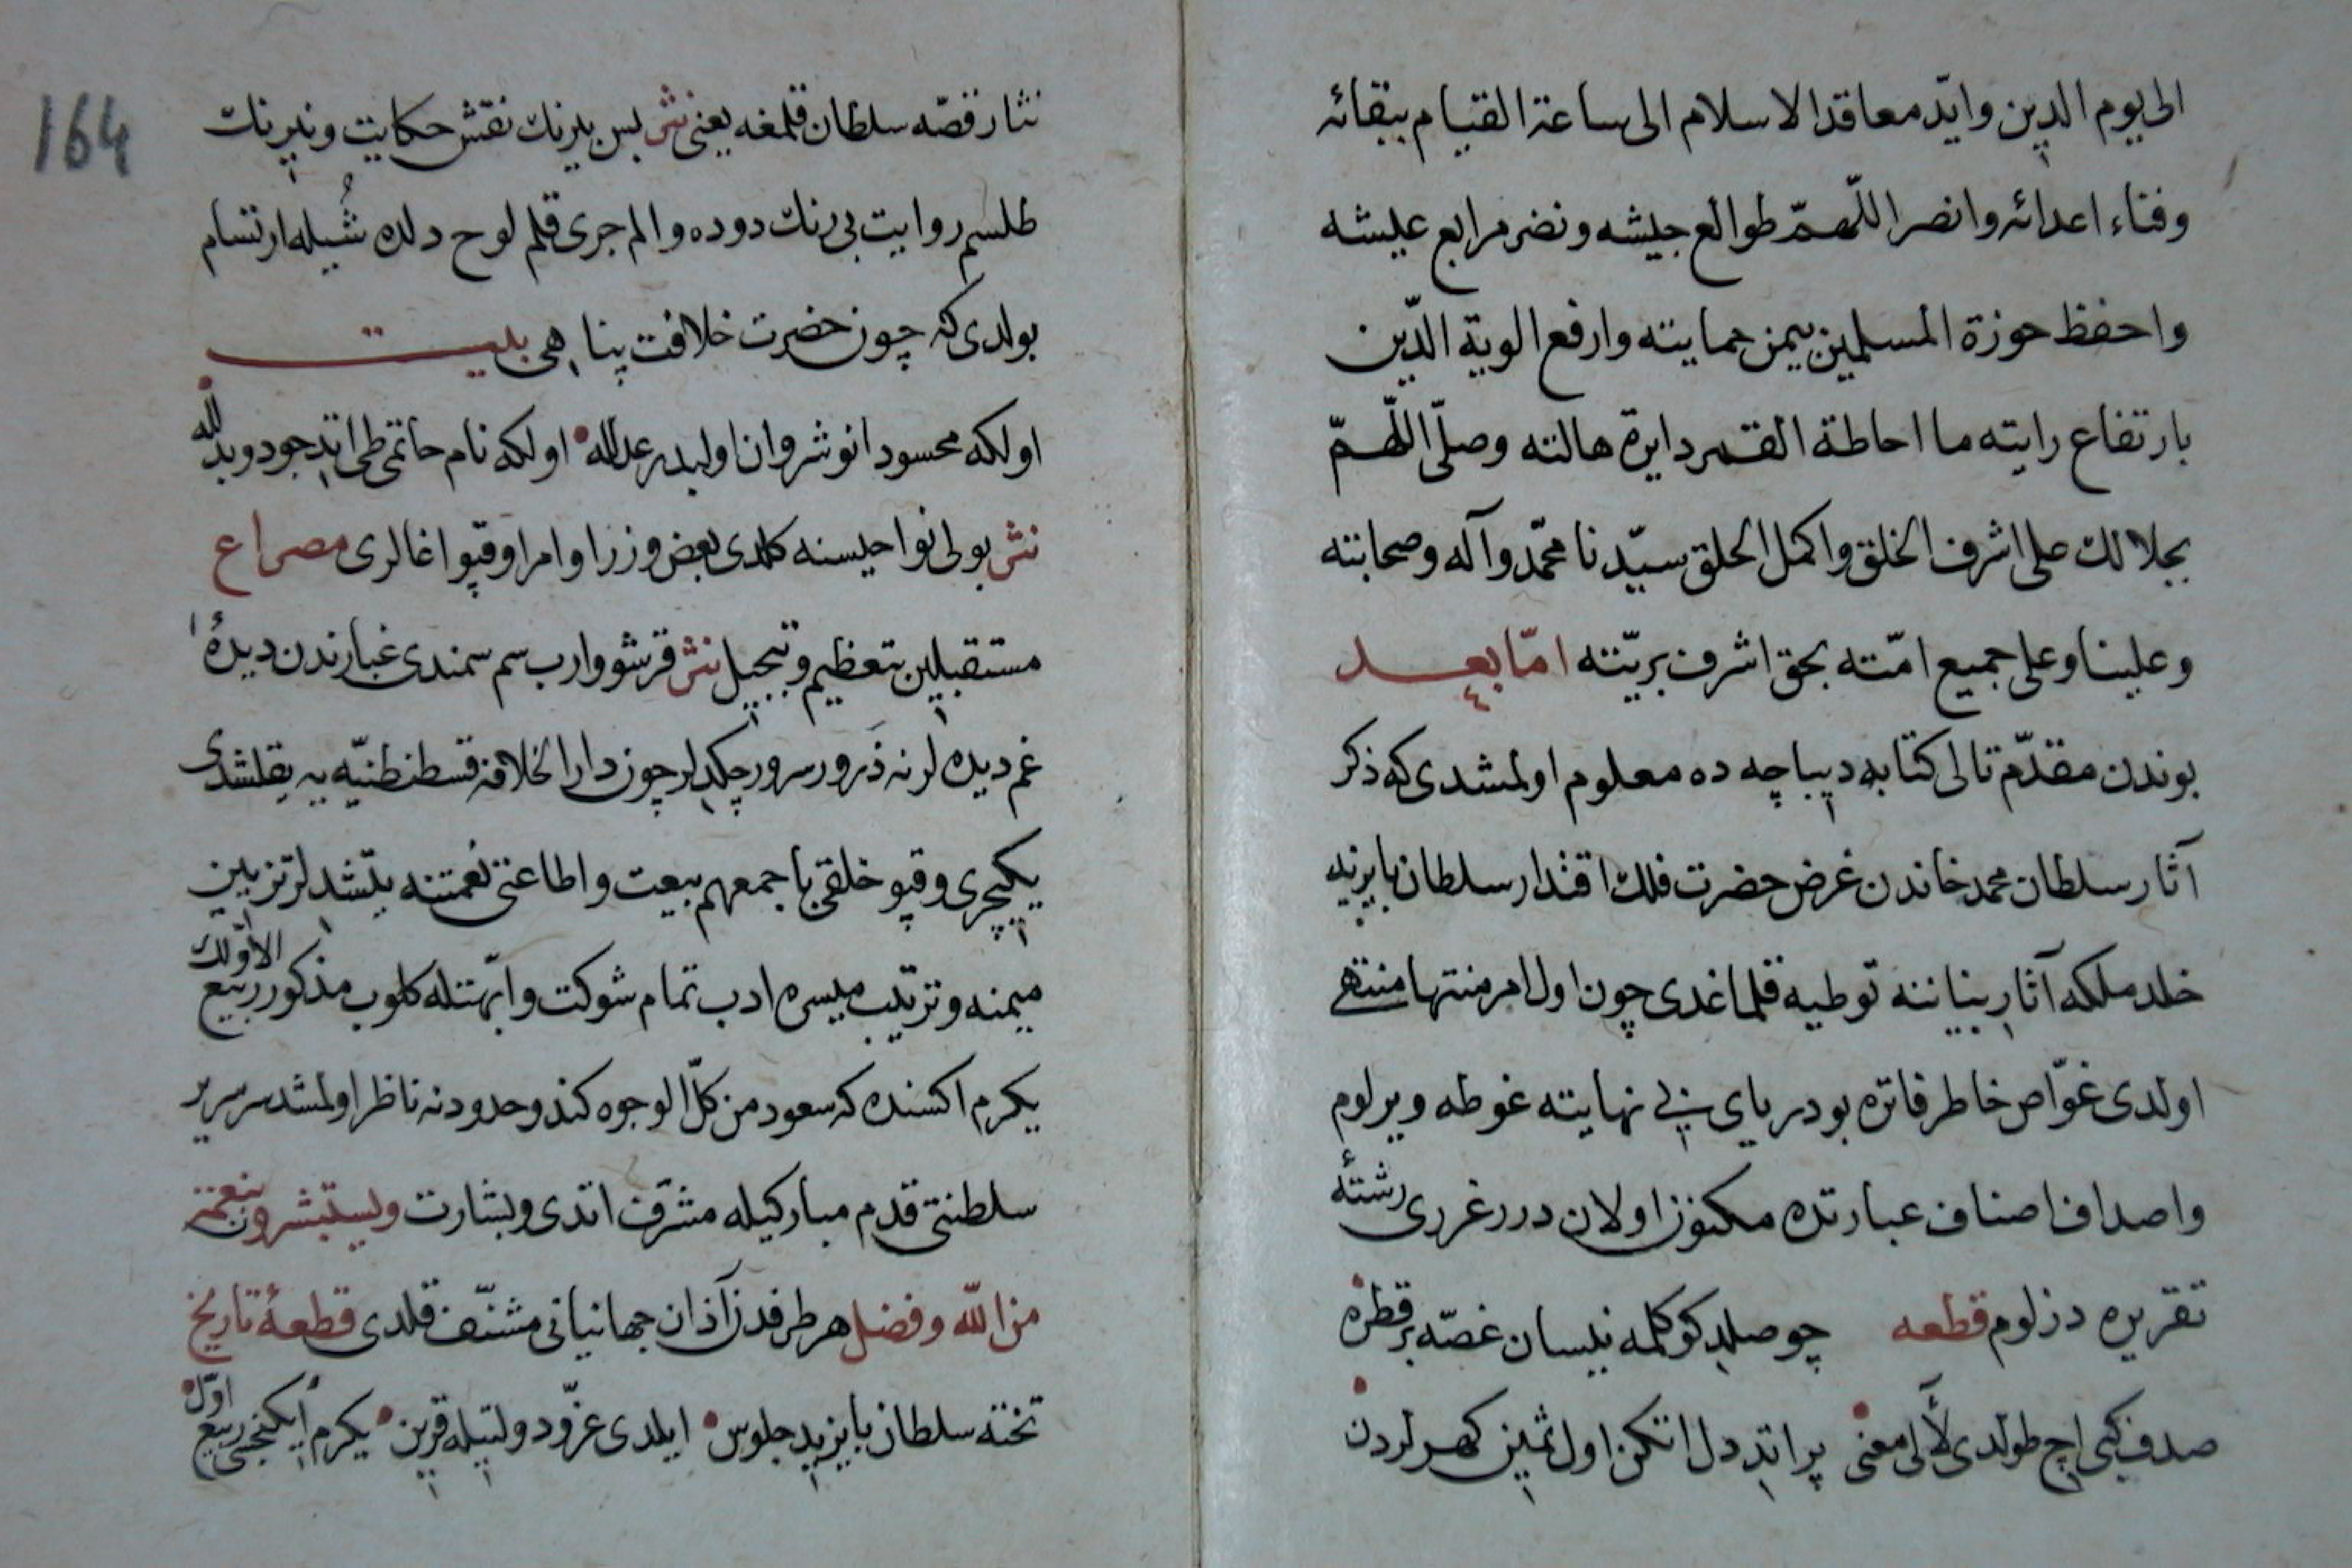 الی یوم الدین واید معاقد الاسلام الی ساعة القیام ببقائه
وفناء اعدائه وانصر اللّهمّ طوالع جیشه ونضر مرابع عیشه
واحفظ حوزة المسلمین بیمن حمایته وارفع الویة الدّین
بارتفاع رایته ما احاطة القمر دایرة هالته وصلّی اللّهمّ
بجلالك علی اشرف الخلق واکمل الخلق سیّدنا محمّد وآله وصحابته
وعلینا وعلی جمیع امّته بحق اشرف بریّته امّا بعد
بوندن مقدّم تالی کتابه دیباچه ده معلوم اولمشدی که ذکر
آثار سلطان محمد خاندن غرض حضرت فلك اقتدار سلطان بایزید
خلد ملکه آثار بنیاننه توطیه قلماغدی چون اول امر منتها منتهی
اولدی غوّاص خاطر فاتره بو دریای بی نهایته غوطه ویرلوم
واصداف اصناف عبارتده مکنوز اولان درر غرری رشتهٔ
تقریره دزلوم قطعه چو صلدی کوکلمه نیسان غصّه بر قطره
صدف کبی ایچ طولدی لآلی معنی پر ایتدی دل اتکن اول ثمین کهرلردن
164
نثار قصّه سلطان قلمغه یعنی نثر بس بیرنك نقش حکایت ونیرنك
طلسم روایت بی رنك دوده والم جری قلم لوح دلده شُیله ارتسام
بولدی که چون حضرت خلافت پناهی بیت
اولکه محسود انوشروان اولیدر عدالله اولکه نام حاتمی طی ایتدی جود وبذلله
نثر بولی نواحیسنه کلدی بعض وزرا وامرا وقپو اغالری مصراع
مستقبلین بتعظیم وتبجیل نثر قرشو وارب سم سمندی غبارندن دیدهٔ
غم دیده لرنه ذرور سرور چکدیلر چون دار الخلافه قسطنطنیّه یه یقلشدی
یکیچری وقپو خلقی باجمعهم بیعت واطاعتی نعمتنه یتشدیلر تزیین
میمنه وترتیب میسره ادب تمام شوکت وابّهتله کلوب مذکور ربیع الاوّلك
یکرم اکسنده که سعود من کلّ الوجوه کندو حدودنه ناظر اولمشدر سریر
سلطنتی قدم مبارکیله مشرّف اتدی وبشارت ویستبشرون بنعمة
من الله وفضل هر طرفدن آذان جهانیانی مشنّف قلدی قطعهٔ تاریخ
تختنه سلطان بایزید جلوس ایلدی عزّ ودولتیله قرین یکرم ایکنجی ربیع اوّل